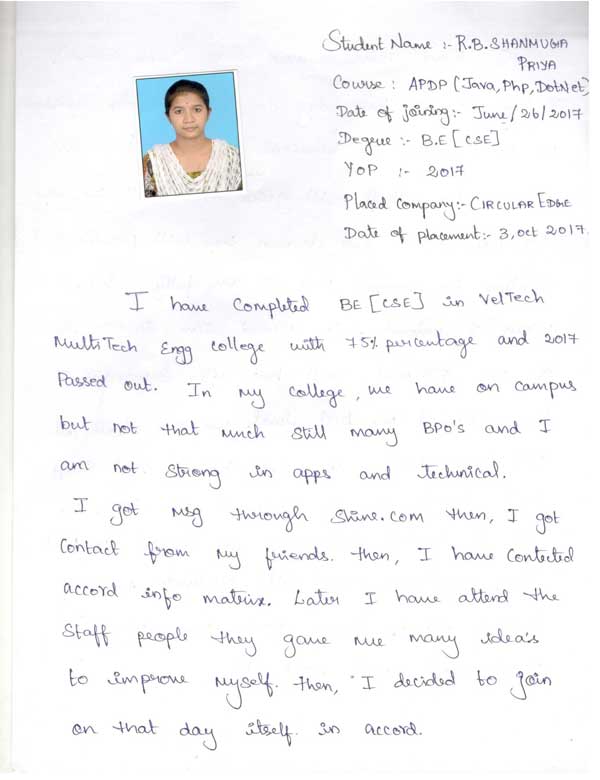 Student Name :- R.B.SHANMUGA
PRIYA
Course : APDP (Java, Php, DotNet)
Date of joining:- June/26/2017
Degree :- B.E [CSE]
YOP :- 2017
Placed Company:- CIRCULAR EDGE
Date of placement:- 3, oct 2017.
I have completed BE [CSE] in VelTech
MultiTech Engg college with 75% percentage and 2017
Passed out. In my college, we have on campus
but not that much still many BPO's and I
am not strong in apps and technical.
I got msg through Shine.com then, I got
Contact from my friends. then, I have contected
accord info matrix. Later I have attend the
Staff people they gave me many idea's
to improve myself. then, I decided to join
on that day itself. in accord.